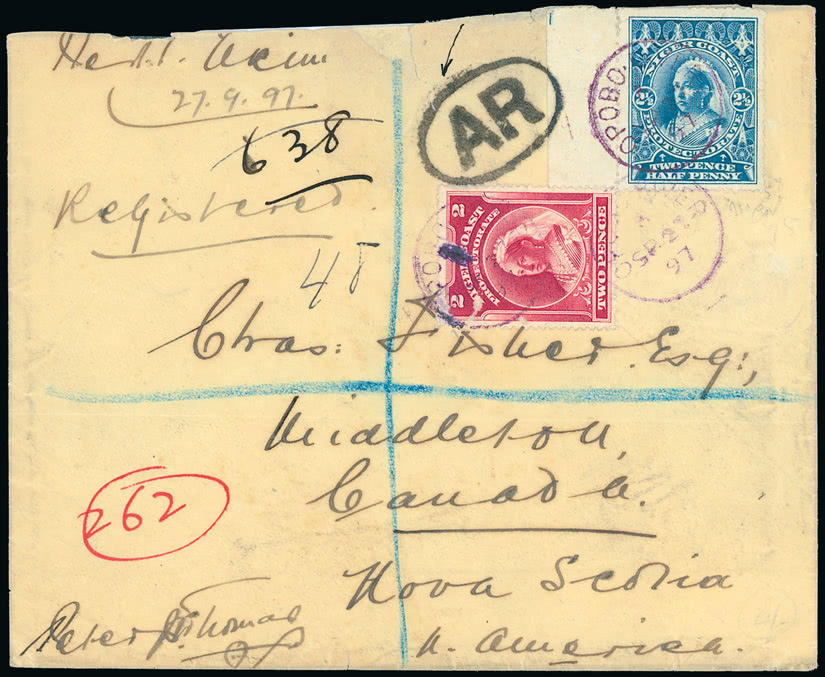 27.9.97.
638
Registered.
48
AR
NIGER COAST
PROTECTORATE
2½ 2½
TWO PENCE
HALF PENNY
OPOBO
RIVER
SP 27
97
2 2
NIGER COAST
PROTECTORATE
TWO PENCE
Chas: Fisher Esq:,
Middleton,
Canada.
Nova Scotia
N. America.
262
Peter Thomas